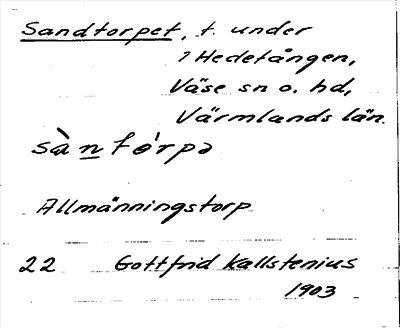 Sandtorpet, t. under
1 Hedetången,
Väse sn o. hd,
Värmlands län.
sàntórpə
Allmänningstorp
22 Gottfrid Kallstenius
1903